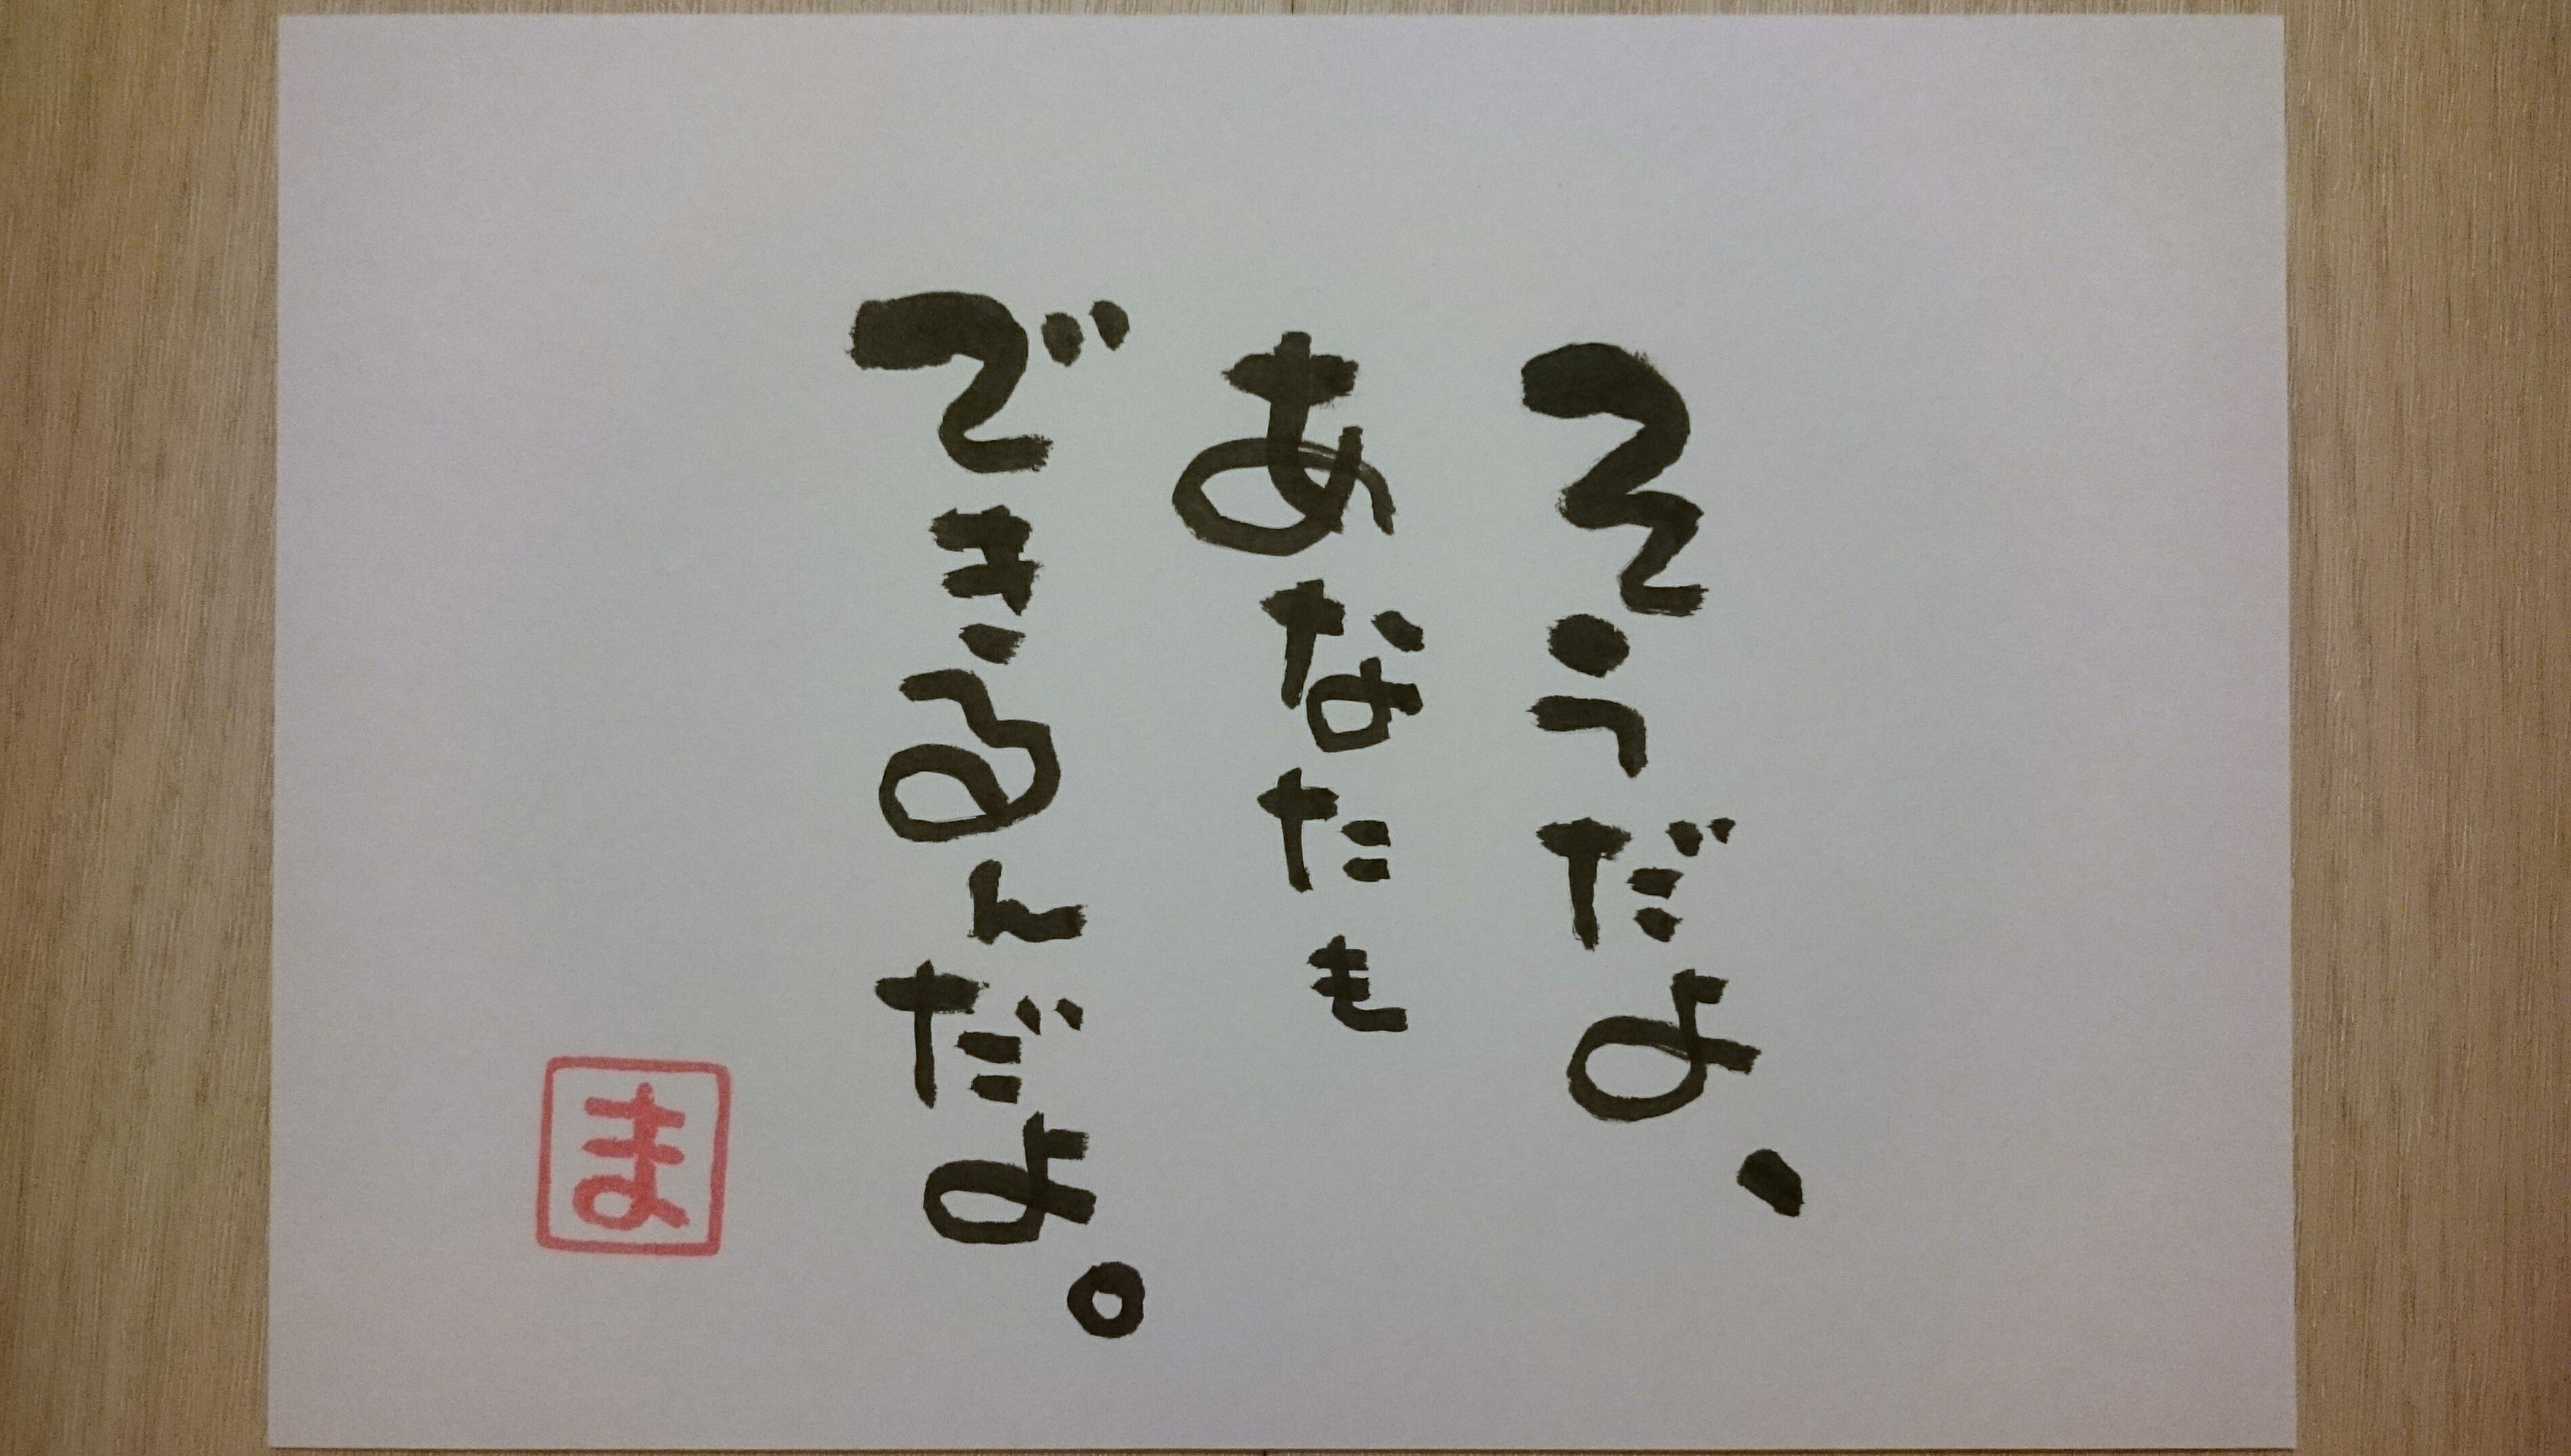 そうだよ、
あなたも
できるんだよ。
ま